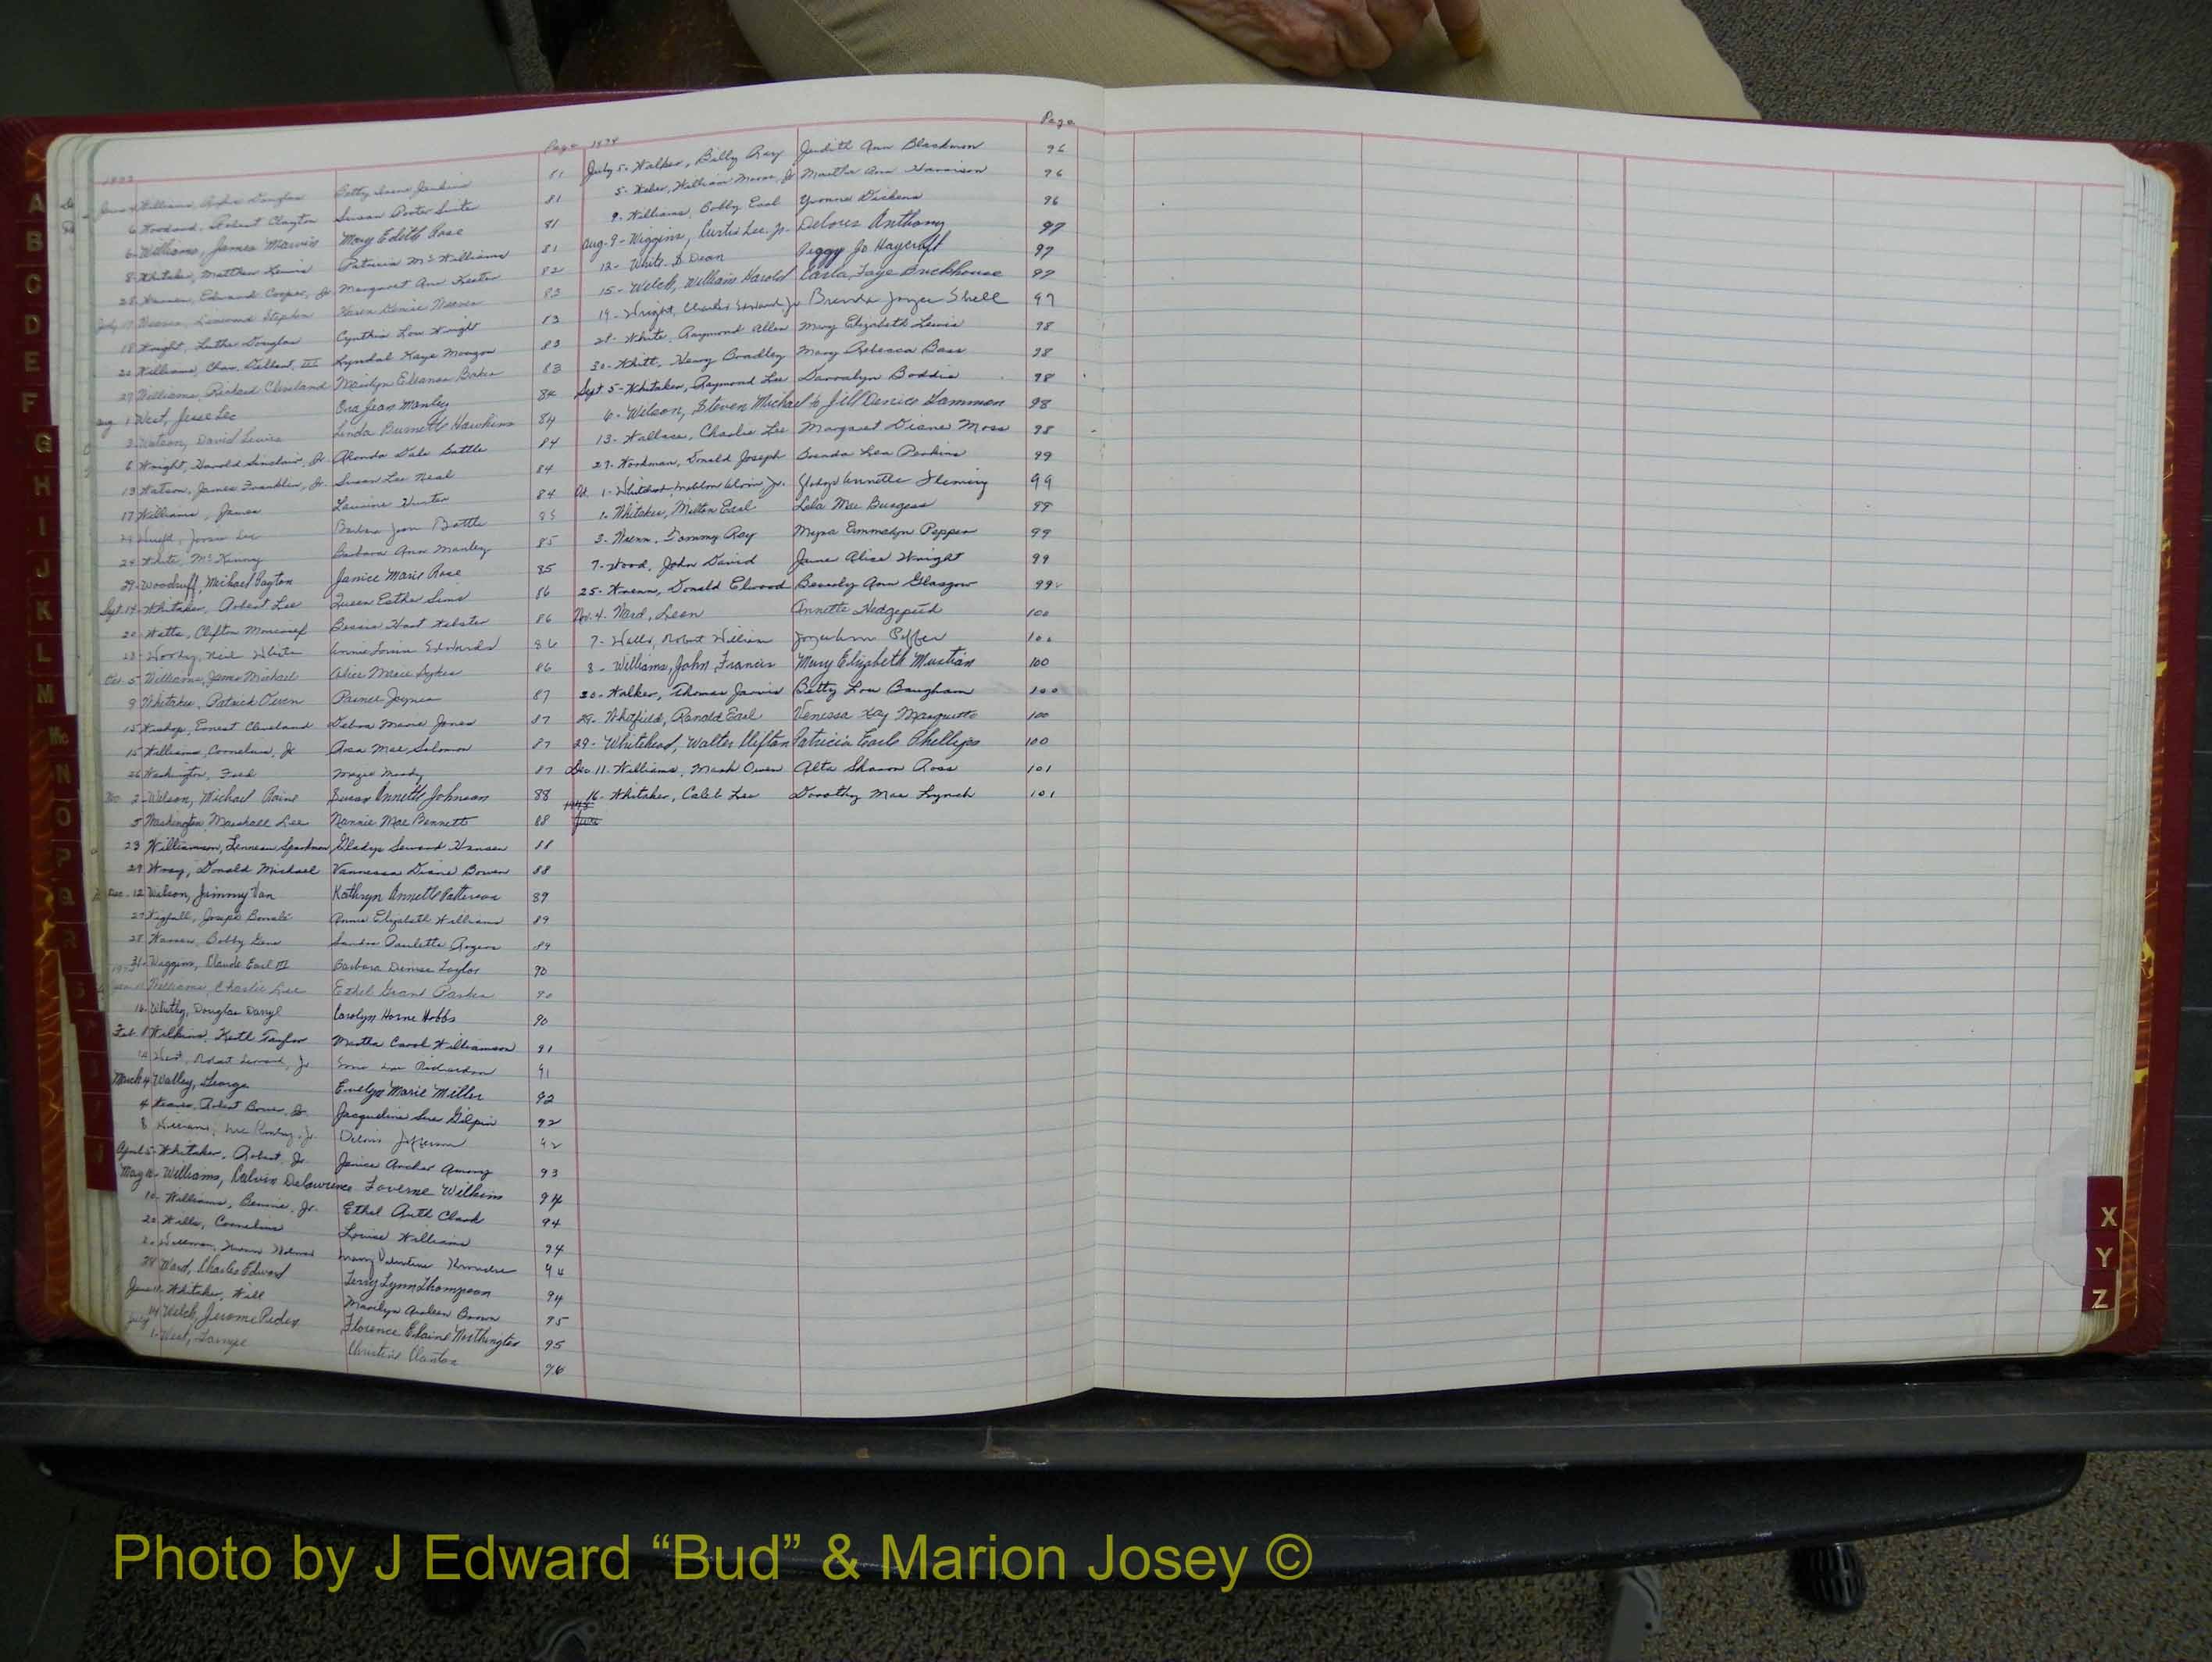 Page
1973
Page 1974
June Williams, Rufus Douglas Betty Irene Jenkins 81
6 Woodard, Robert Clayton Susan Porter Suiter 81
6- Williams, James Marvin Mary Edith Rose 81
8- Whitaker, Matthew Lewis Patricia McWilliams 81
28- Warren, Edward Cooper, Jr. Margaret Ann Keeter 82
July Linwood Stephen Karen Denise 83
18 Wright, Luther Douglas Cynthia Lou Wright 83
20 Williams, Chas. Gilbert, III Lyndal Kaye 83
27 Williams, Richard Cleveland Marilyn Eleanor Baker 83
Aug 1 West, Jesse Lee Ora Jean Manley 84
3 Watson, David Lewis Linda Burnette Hawkins 84
6 Wright, Harold Sinclair, Jr. Rhonda Dale Battle 84
13 Watson, James Franklin, Jr. Susan Lee Neal 84
17 Williams, James Laurine Hunter 84
Barbara Jean Battle 85
24 White, McKinny Barbara Ann Manley 85
29- Woodruff, Michael Payton Janice Marie Rose 85
Sept. 14 Whitaker, Robert Lee Queen Esther Sims 86
20 Watts, Clifton Moncrief Bessie Hart Webster 86
Annie Edwards 86
Oct. 5 Williams, James Michael Alice Marie Sykes 86
9 Whitaker, Patrick Owen Prince Joyner 87
15 Ernest Cleveland Debra Marie Jones 87
15 Williams, Cornelius, Jr Rosa Mae Solomon 87
26 Washington, Fred Maggie Moody 87
Nov 2- Wilson, Michael Raine Susan Annette Johnson 88
5 Washington, Marshall Lee Nannie Mae Bennett 88
23 Williamson, Sparkman Gladys Seward Hansen 88
29 Wray, Donald Michael Vannessa Diane Bowen 88
Dec. 12 Wilson, Jimmy Van Kathryn Annette Patterson 89
27 Wigfall, Joseph Annie Elizabeth Williams 89
28 Warren, Bobby Gene Sandra Paulette Rogers 89
31- Wiggins, Claude Earl III Barbara Denise Taylor 90
Williams, Charlie Lee Ethel Grant Parker 90
16- Whitby, Douglas Darryl Carolyn Horne Hobbs 90
Feb. 8 Wilkins, Keith Taylor Martha Carol Williamson 91
West, Robert Leonard, Jr Lou Richardson 91
March 4 Walley, George Evelyn Marie Miller 92
4 Weaver, Robert Bruce, Jr. Jacqueline Sue Gilpin 92
8 Jr. Deloris Jefferson 92
April 5- Whitaker, Robert, Jr. Janice Archer 93
May Williams, Calvin Delawrence Laverne Wilkins 94
10- Williams, Bennie, Jr. Ethel Ruth Clark 94
20 Wills, Cornelius Louise Williams 94
Mary 94
28 Ward, Charles Edward Terry Lynn Thompson 94
June 11, Whitaker, Will Marilyn Arleen Brown 95
14 Welch, Jerome Peder Florence Elaine Worthington 95
July 1- West, Christine Clanton 96
July 5- Walker, Billy Ray Judith Ann Blackmon 96
5- Weber, William Jr Martha Ann Harrison 96
9- Williams, Bobby Earl Yvonne Dickens 96
Aug. 9- Wiggins, Curtis Lee Jr- Delores Anthony 97
12- White D Dean Peggy Jo Haycraft 97
15- Welch, William Harold Carla Faye Buckhouse 97
19- Wright, Charles Edward Jr Brenda Joyce Shell 97
28- White, Raymond Allen Mary Elizabeth Lewis 98
30- Whitt, Henry Bradley Mary Rebecca Bass 98
Sept 5- Whitaker, Raymond Lee Darralyn Boddie 98
6- Wilson, Steven Michael to Jill Denice Lammon 98
13- Wallace, Charlie Lee Margaret Diane Moss 98
27- Workman, Donald Joseph Brenda Lea Perkins 99
Oct. 1- Whitehead, Jr. Gladys Annette Fleming 99
1- Whitaker, Milton Earl Lela Mae Burgess 99
3- Wrenn, Tommy Ray Myra Emmalyn Pepper 99
7- Wood, John David June Alice Wright 99
25- Wrenn, Donald Elwood Beverly Ann Glasgow 99
Nov. 4- Ward, Leon Annette Hedgepeth 100
7- Walls, Robert William Joyce Ann 100
8- Williams, John Francis Mary Elizabeth Mustian 100
20- Walker, Thomas Jarvis Betty Lou Baugham 100
28- Whitfield, Ronald Earl Venessa Kay Marquette 100
29- Whitehead, Walter Clifton Patricia Earle Phillips 100
Dec. 11- Williams, Mark Owen Alta Sharon Ross 101
16- Whitaker, Caleb Lee Dorothy Mae Lynch 101
1975
June
A
B
C
D
E
F
G
H
I
J
K
L
M
Mc
N
O
P
Q
R
S
X
Y
Z
Photo by J Edward “Bud” & Marion Josey ©